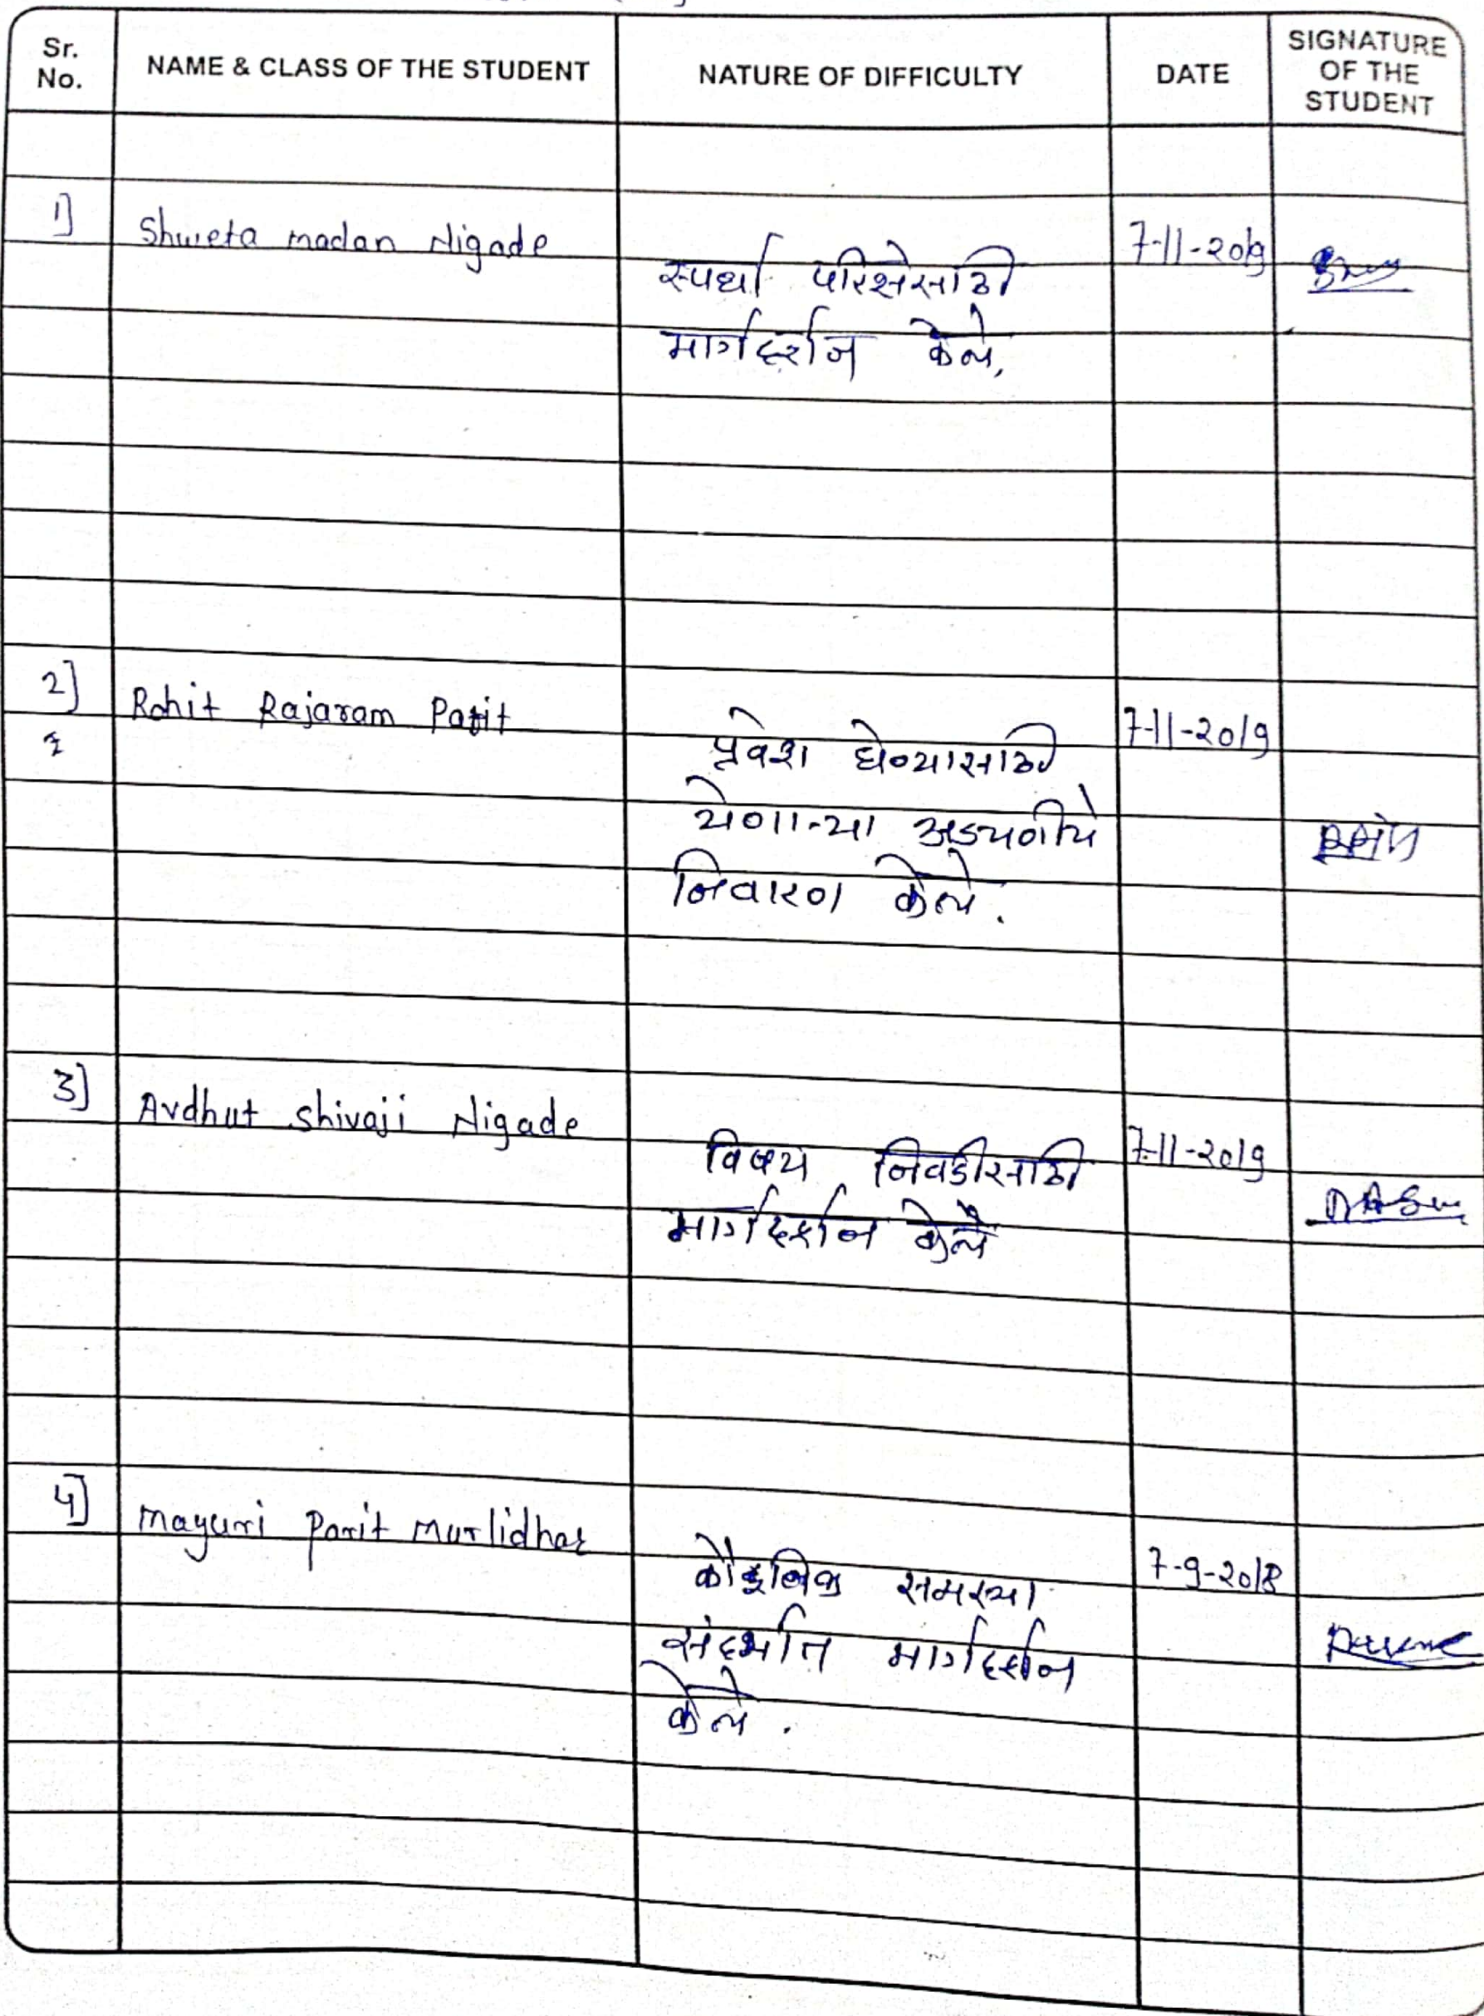 Sr. No.
NAME & CLASS OF THE STUDENT
NATURE OF DIFFICULTY
DATE
SIGNATURE OF THE STUDENT
1]
Shweta madan Nigade
स्पर्धा परिक्षेसाठी
मार्गदर्शन केले.
7-11-2019
2]
Rohit Rajaram Parit
प्रवेश घेण्यासाठी
येणाऱ्या अडचणीचे
निवारण केले.
7-11-2019
3]
Avdhut Shivaji Nigade
विषय निवडीसाठी
मार्गदर्शन केले
7-11-2019
4]
mayuri Parit Murlidhar
कौटुंबिक समस्या
संदर्भात मार्गदर्शन
केले.
7-9-2018